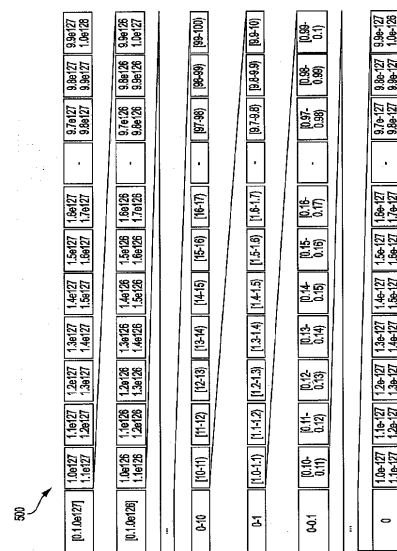 500
[0.1.0e127]
1.0e127
1.1e127
1.1e127
1.2e127
1.2e127
1.3e127
1.3e127
1.4e127
1.4e127
1.5e127
1.5e127
1.6e127
1.6e127
1.7e127
-
9.7e127
9.8e127
9.8e127
9.9e127
9.9e127
1.0e128
[0.1.0e126]
1.0e126
1.1e126
1.1e126
1.2e126
1.2e126
1.3e126
1.3e126
1.4e126
1.4e126
1.5e126
1.5e126
1.6e126
1.6e126
1.7e126
-
9.7e126
9.8e126
9.8e126
9.9e126
9.9e126
1.0e127
...
0-10
[10-11)
[11-12)
[12-13)
[13-14)
[14-15)
[15-16)
[16-17)
-
[97-98)
[98-99)
[99-100)
0-1
[1.0-1.1)
[1.1-1.2)
[1.2-1.3)
[1.3-1.4)
[1.4-1.5)
[1.5-1.6)
[1.6-1.7)
-
[9.7-9.8)
[9.8-9.9)
[9.9-10)
0-0.1
[0.10-
0.11)
[0.11-
0.12)
[0.12-
0.13)
[0.13-
0.14)
[0.14-
0.15)
[0.15-
0.16)
[0.16-
0.17)
-
[0.97-
0.98)
[0.98-
0.99)
[0.99-
0.1)
...
0
1.0e-127
1.1e-127
1.1e-127
1.2e-127
1.2e-127
1.3e-127
1.3e-127
1.4e-127
1.4e-127
1.5e-127
1.5e-127
1.6e-127
1.6e-127
1.7e-127
-
9.7e-127
9.8e-127
9.8e-127
9.9e-127
9.9e-127
1.0e-126